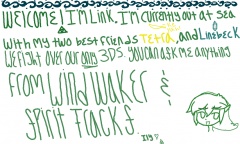 Welcome! I'm Link. I'm currently out at sea
with my two best friends Tetra, and Linebeck
We fight over our only 3DS. You can ask me anything
from Wind Waker &
Spirit Tracks.